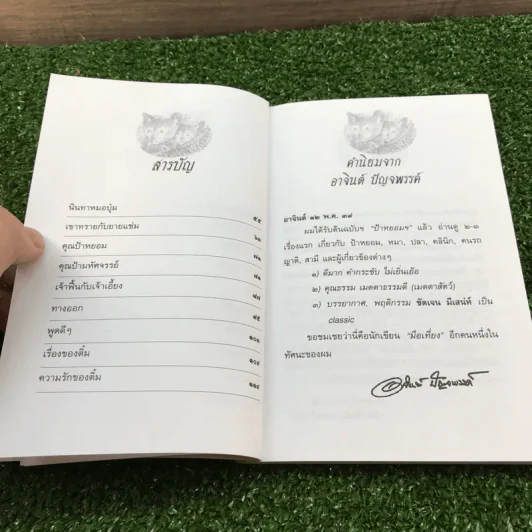 สารบัญ
นินทาหมอบุ๋ม
๕๕
เขาทรายกับยายแช่ม
๖๓
คุณป้าหยอม
๗๑
คุณป้ามหัศจรรย์
๗๙
เจ้าพื้นกับเจ้าเอี้ยง
๘๗
ทางออก
๙๕
พูดดีๆ
๑๐๑
เรื่องของติ๋ม
๑๐๙
ความรักของติ๋ม
๑๑๙
คำนิยมจาก
อาจินต์ ปัญจพรรค์
อาจินต์ ๑๒ พ.ค. ๓๙
ผมได้รับต้นฉบับฯ "ป้าหยอมฯ" แล้ว อ่านดู ๒-๓
เรื่องแรก เกี่ยวกับ ป้าหยอม, หมา, ปลา, คลินิก, คนรถ
ญาติ, สามี และผู้เกี่ยวข้องต่างๆ
๑) ดีมาก คำกระชับ ไม่เยิ่นเย้อ
๒) คุณธรรม เมตตาธรรมดี (เมตตาสัตว์)
๓) บรรยากาศ, พฤติกรรม ชัดเจน มีเสน่ห์ เป็น
classic
ขอชมเชยว่านี่คือนักเขียน "มือเที่ยง" อีกคนหนึ่งใน
ทัศนะของผม
อาจินต์ ปัญจพรรค์